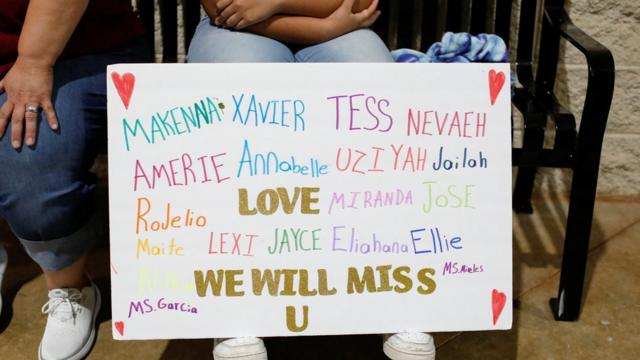 MAKENNA XAVIER TESS NEVAEH
AMERIE Annabelle UZIYAH Jailah
LOVE MIRANDA JoSE
RoJelio
Maite LEXI JAYCE Eliahana Ellie
WE WILL MISS
MS. Garcia
U